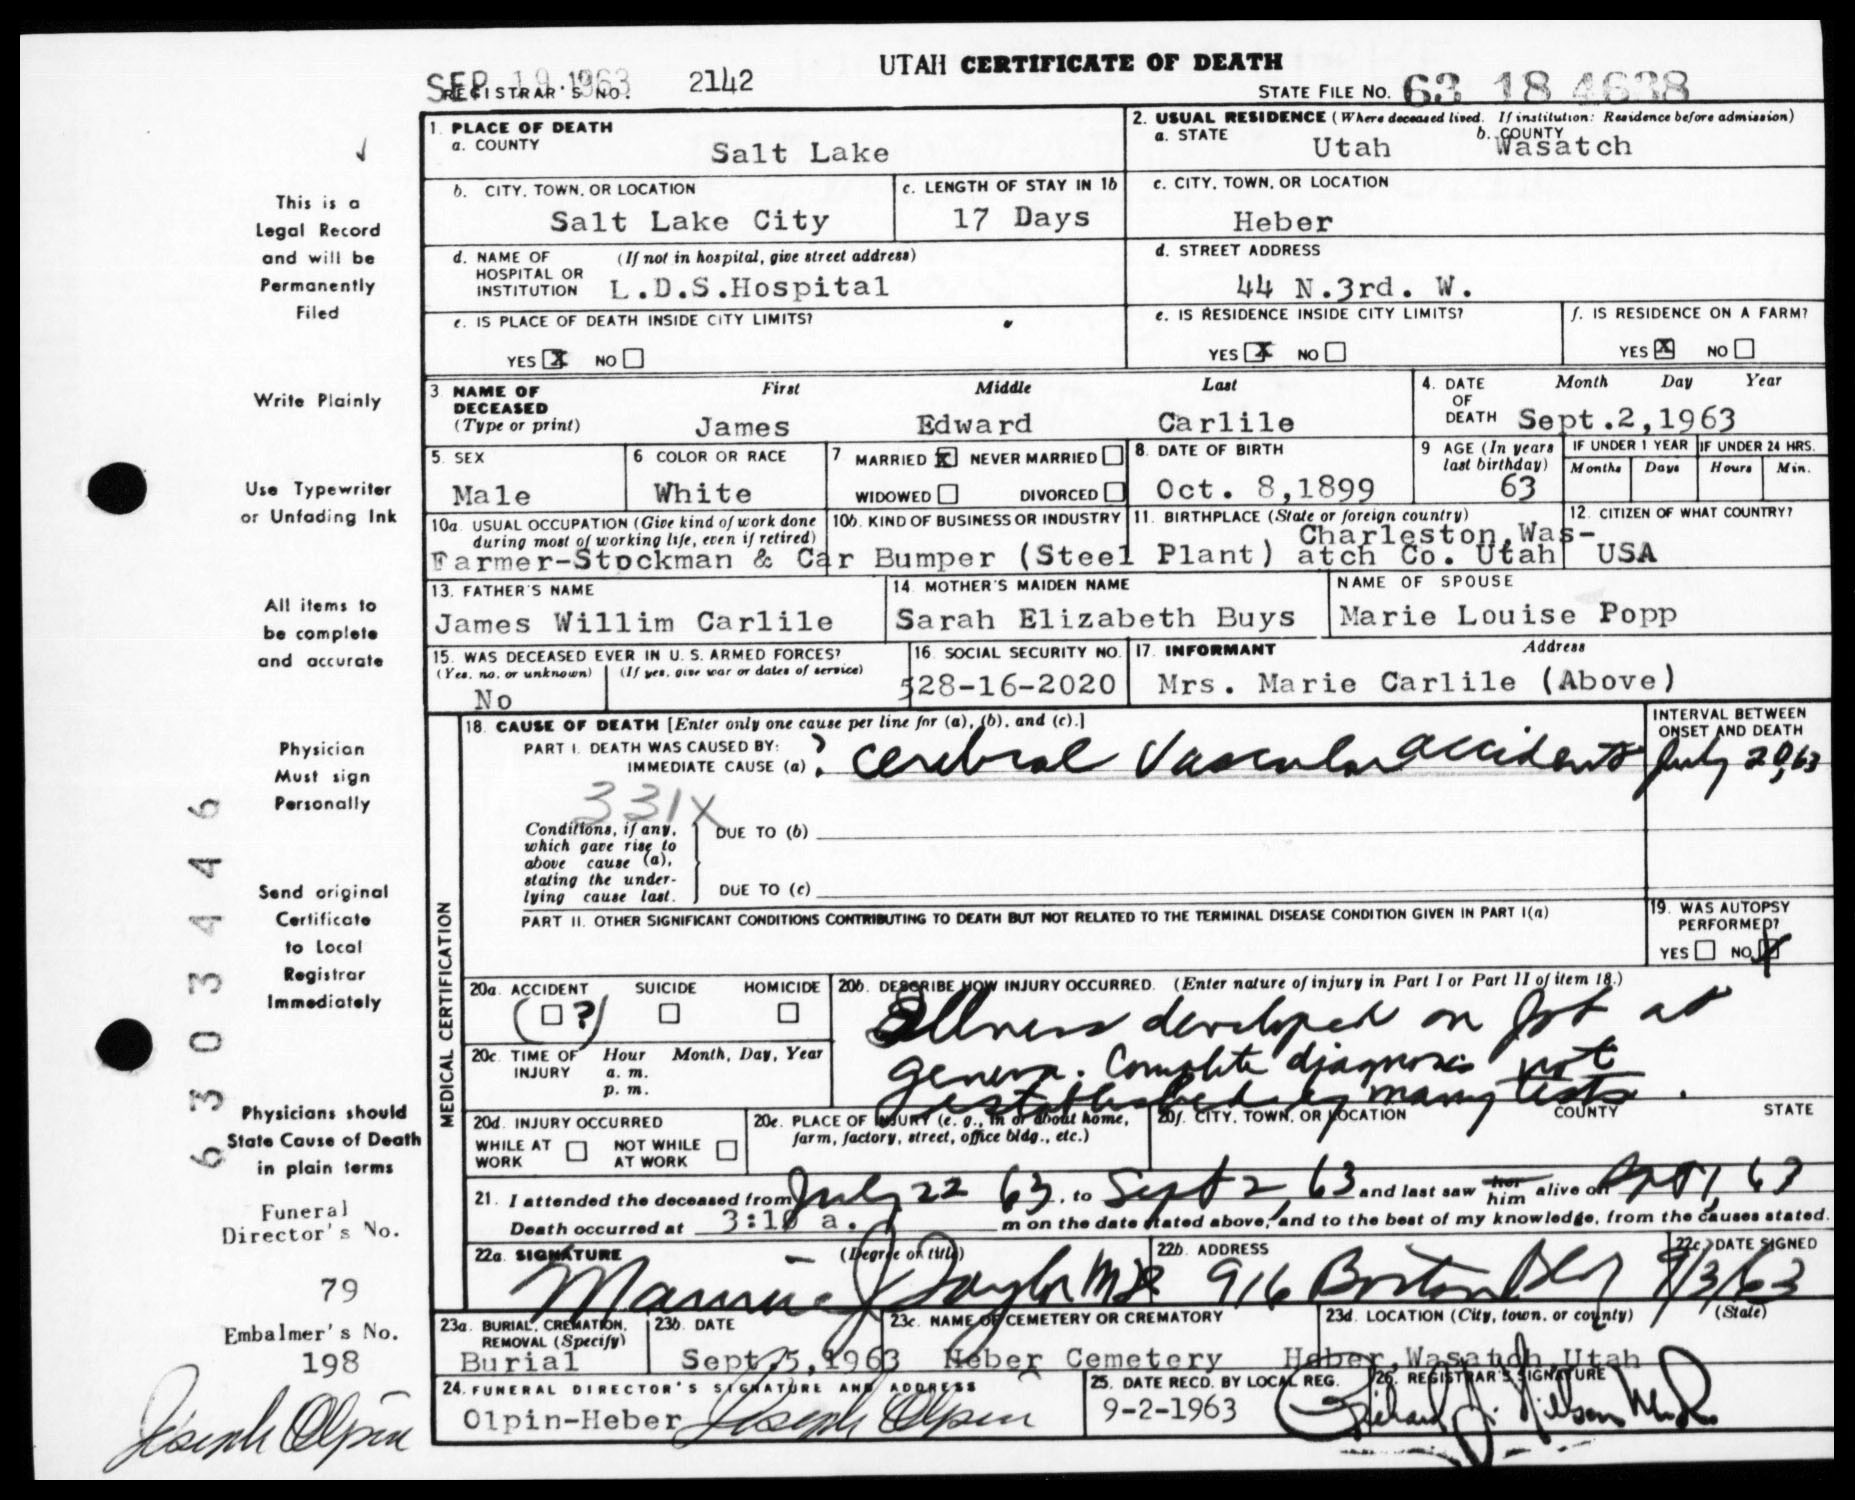 UTAH CERTIFICATE OF DEATH
SEP 19 1963
REGISTRAR'S NO. 2142
STATE FILE NO. 63 18 4638
1. PLACE OF DEATH
a. COUNTY
Salt Lake
2. USUAL RESIDENCE (Where deceased lived. If institution: Residence before admission)
a. STATE Utah b. COUNTY Wasatch
b. CITY, TOWN, OR LOCATION
Salt Lake City
c. LENGTH OF STAY IN 1b
17 Days
c. CITY, TOWN, OR LOCATION
Heber
d. NAME OF HOSPITAL OR INSTITUTION (If not in hospital, give street address)
L.D.S.Hospital
d. STREET ADDRESS
44 N.3rd. W.
e. IS PLACE OF DEATH INSIDE CITY LIMITS?
YES X NO
e. IS RESIDENCE INSIDE CITY LIMITS?
YES X NO
f. IS RESIDENCE ON A FARM?
YES X NO
3 NAME OF DECEASED (Type or print)
First Middle Last
James Edward Carlile
4. DATE OF DEATH Month Day Year
Sept.2,1963
5. SEX
Male
6 COLOR OR RACE
White
7 MARRIED X NEVER MARRIED
WIDOWED DIVORCED
8. DATE OF BIRTH
Oct. 8,1899
9 AGE (In years last birthday)
63
IF UNDER 1 YEAR
Months Days
IF UNDER 24 HRS.
Hours Min.
10a. USUAL OCCUPATION (Give kind of work done during most of working life, even if retired)
10b. KIND OF BUSINESS OR INDUSTRY
Farmer-Stockman & Car Bumper (Steel Plant)
11. BIRTHPLACE (State or foreign country)
Charleston,Was-
atch Co. Utah
12. CITIZEN OF WHAT COUNTRY?
USA
13. FATHER'S NAME
James Willim Carlile
14. MOTHER'S MAIDEN NAME
Sarah Elizabeth Buys
NAME OF SPOUSE
Marie Louise Popp
15. WAS DECEASED EVER IN U. S. ARMED FORCES?
(Yes, no, or unknown) (If yes, give war or dates of service)
No
16. SOCIAL SECURITY NO.
528-16-2020
17. INFORMANT Address
Mrs. Marie Carlile (Above)
MEDICAL CERTIFICATION
18. CAUSE OF DEATH [Enter only one cause per line for (a), (b), and (c).]
PART I. DEATH WAS CAUSED BY:
IMMEDIATE CAUSE (a) ? Cerebral Vascular accident
INTERVAL BETWEEN ONSET AND DEATH
July 20,63
331X
Conditions, if any, which gave rise to above cause (a), stating the underlying cause last.
DUE TO (b)
DUE TO (c)
PART II. OTHER SIGNIFICANT CONDITIONS CONTRIBUTING TO DEATH BUT NOT RELATED TO THE TERMINAL DISEASE CONDITION GIVEN IN PART I(a)
19. WAS AUTOPSY PERFORMED?
YES NO X
20a. ACCIDENT SUICIDE HOMICIDE
( ?)
20b. DESCRIBE HOW INJURY OCCURRED. (Enter nature of injury in Part I or Part II of item 18.)
Illness developed on Job at
Geneva. Complete diagnosis not
established by many tests.
20c. TIME OF INJURY Hour Month, Day, Year
a. m.
p. m.
20d. INJURY OCCURRED
WHILE AT WORK NOT WHILE AT WORK
20e. PLACE OF INJURY (e. g., in or about home, farm, factory, street, office bldg., etc.)
20f. CITY, TOWN, OR LOCATION COUNTY STATE
21. I attended the deceased from July 22 63, to Sept 2, 63 and last saw her him alive on Sept 1, 63
Death occurred at 3:10 a. m on the date stated above, and to the best of my knowledge, from the causes stated.
22a. SIGNATURE (Degree or title)
J Taylor MD
22b. ADDRESS
916 Boston Bldg
22c. DATE SIGNED
9/3/63
23a. BURIAL, CREMATION, REMOVAL (Specify)
Burial
23b. DATE
Sept.5,1963
23c. NAME OF CEMETERY OR CREMATORY
Heber Cemetery
23d. LOCATION (City, town, or county) (State)
Heber,Wasatch,Utah
24. FUNERAL DIRECTOR'S SIGNATURE AND ADDRESS
Olpin-Heber Joseph Olpin
25. DATE RECD. BY LOCAL REG.
9-2-1963
26. REGISTRAR'S SIGNATURE
This is a
Legal Record
and will be
Permanently
Filed
Write Plainly
Use Typewriter
or Unfading Ink
All items to
be complete
and accurate
Physician
Must sign
Personally
Send original
Certificate
to Local
Registrar
Immediately
Physicians should
State Cause of Death
in plain terms
Funeral
Director's No.
79
Embalmer's No.
198
Joseph Olpin
6303446